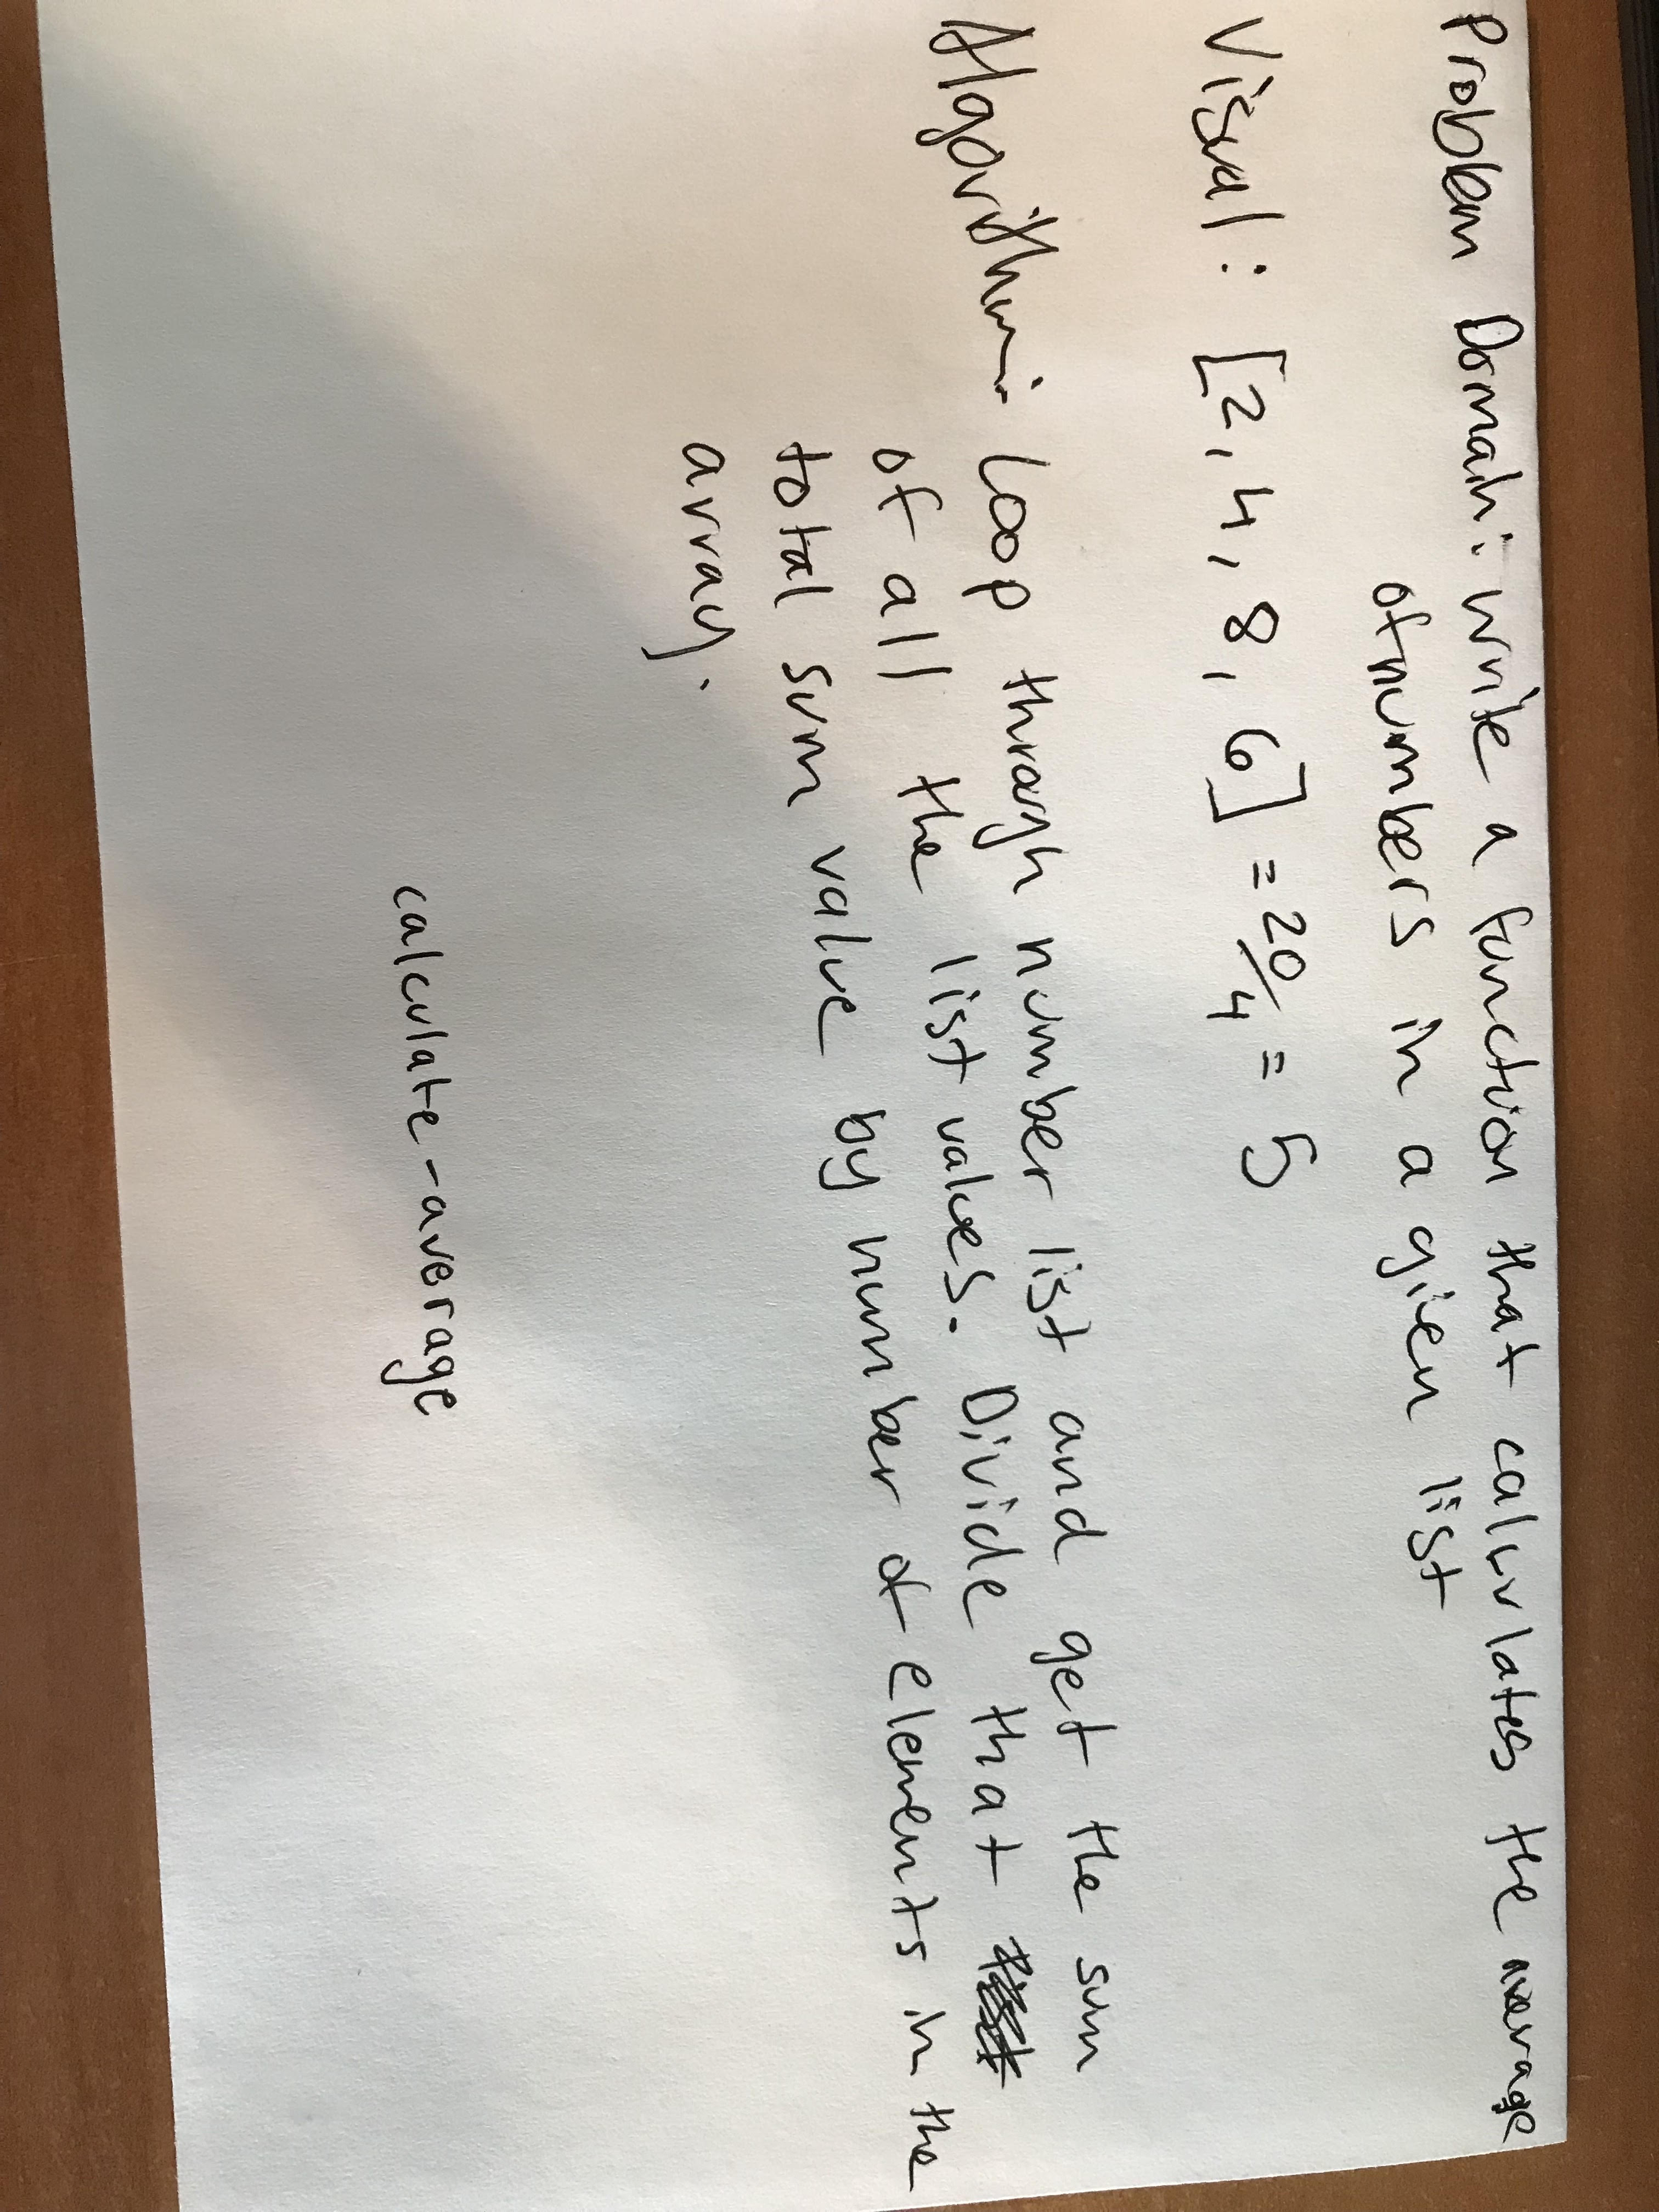 Problem Domain: write a function that calculates the average
of numbers in a given list
Visual: [2, 4, 8, 6] = 20/4 = 5
Algorithm: Loop through number list and get the sum
of all the list values. Divide that
total sum value by number of elements in the
array.
calculate-average